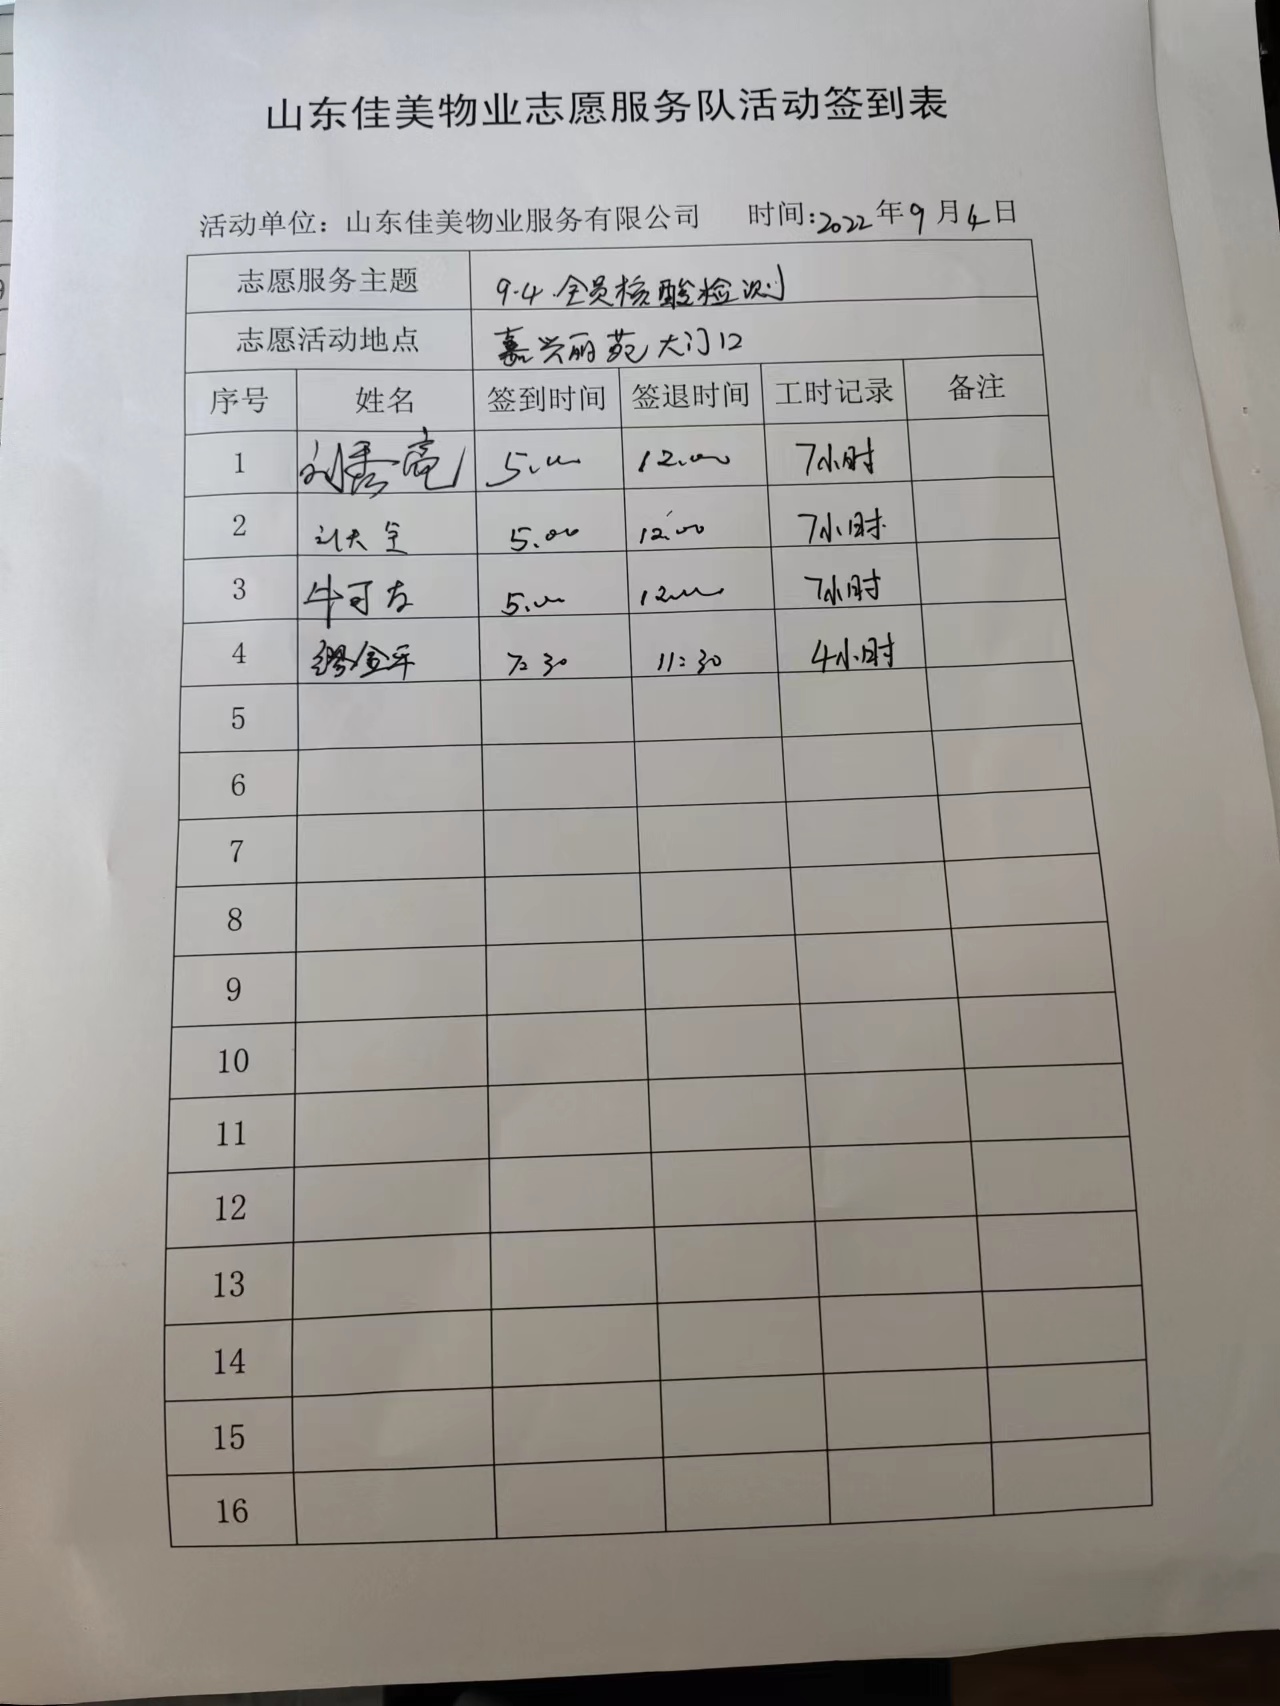 山东佳美物业志愿服务队活动签到表
活动单位：山东佳美物业服务有限公司 时间：2022年9月4日
志愿服务主题 9.4.全员核酸检测
志愿活动地点 嘉兴丽苑大门口
序号 姓名 签到时间 签退时间 工时记录 备注
1 刘秀亮 5.00 12.00 7小时
2 5.00 12:00 7小时
3 牛可友 5.00 12.00 7小时
4 金平 7:30 11:30 4小时
5
6
7
8
9
10
11
12
13
14
15
16